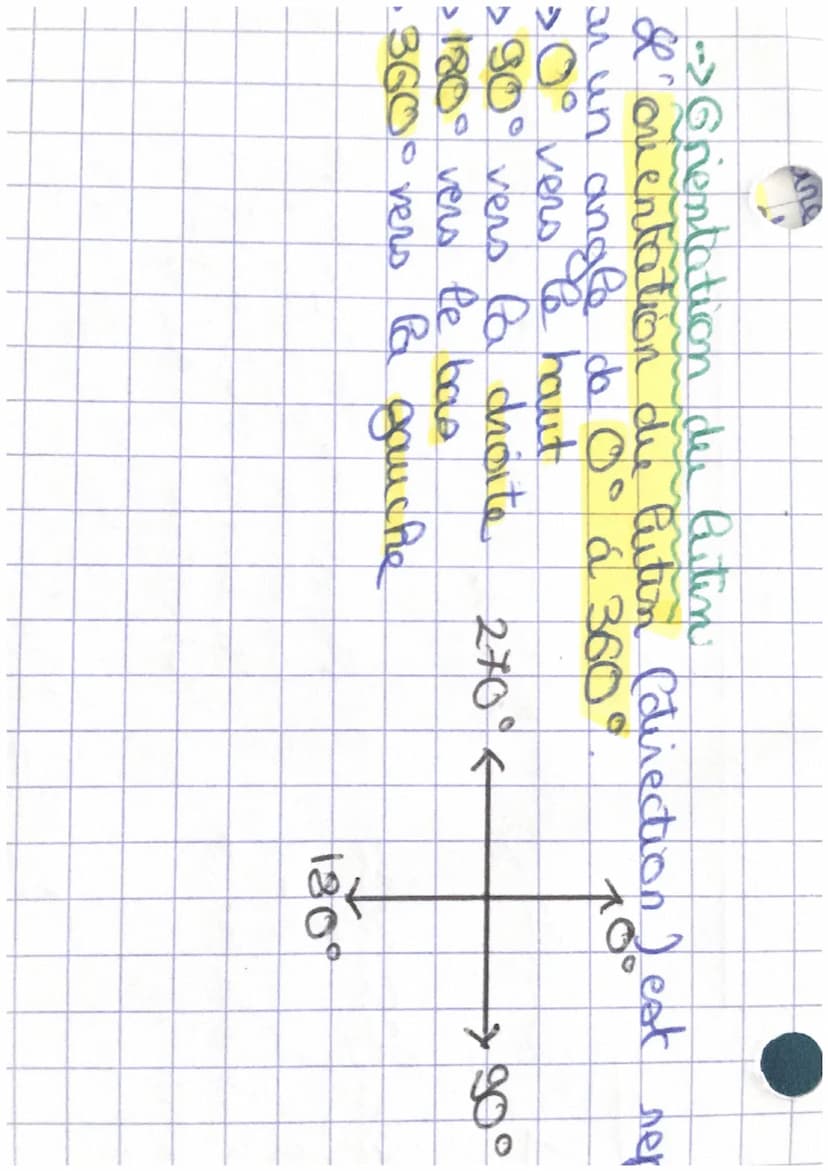 -> Orientation du lutin
L'orientation du lutin (direction) est rep
ar un angle de 0° à 360°
-> 0° vers le haut
-> 90° vers la droite
-> 180° vers le bas
360° vers la gauche
0°
270°
90°
180°